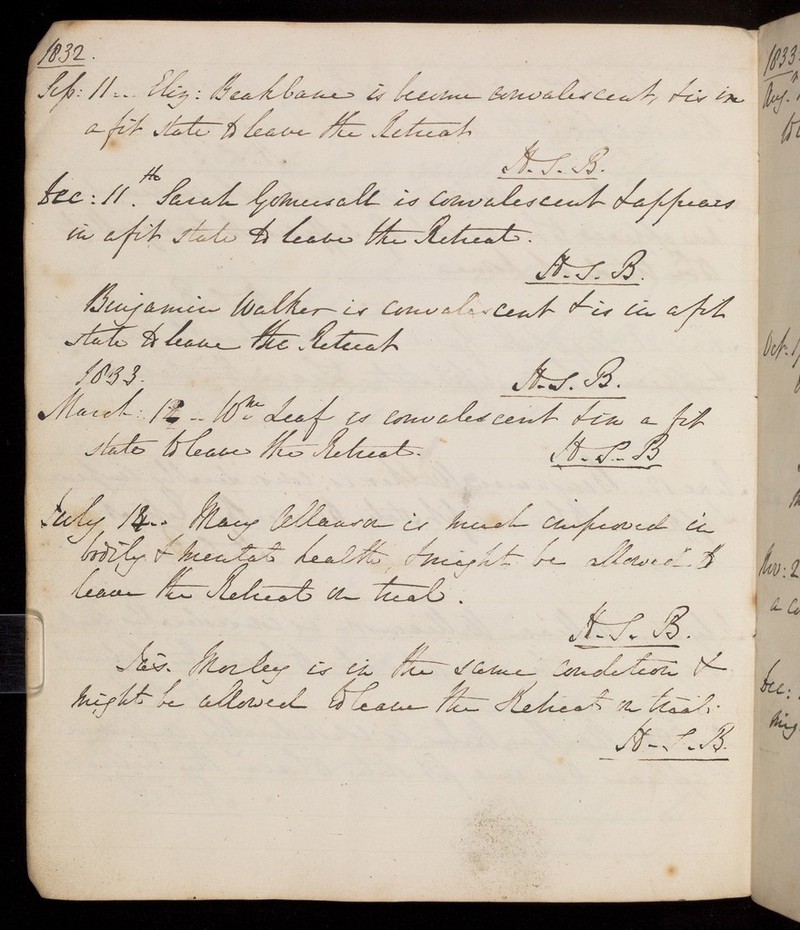 1832.
Sep: 11 -- Eliz: Beakbane is become convalescent, & is in
a fit state to leave the Retreat
H. S. B.
Dec: 11.th Sarah Gomersall is convalescent & appears
in a fit state to leave the Retreat.
H. S. B.
Benjamin Walker is convalescent & is in a fit
state to leave the Retreat
1833.
H. S. B.
March: 12 -- Wm Leaf is convalescent & in a fit
state to leave the Retreat.
H. S. B
July -- Mary Allanson is much improved in
bodily & mental health, & might be allowed to
leave the Retreat on trial.
H. S. B.
Morley is in the same condition &
might be allowed to leave the Retreat on trial.
H. S. B.
1833
Aug.
Oct.
Nov: 2
a co
Dec: